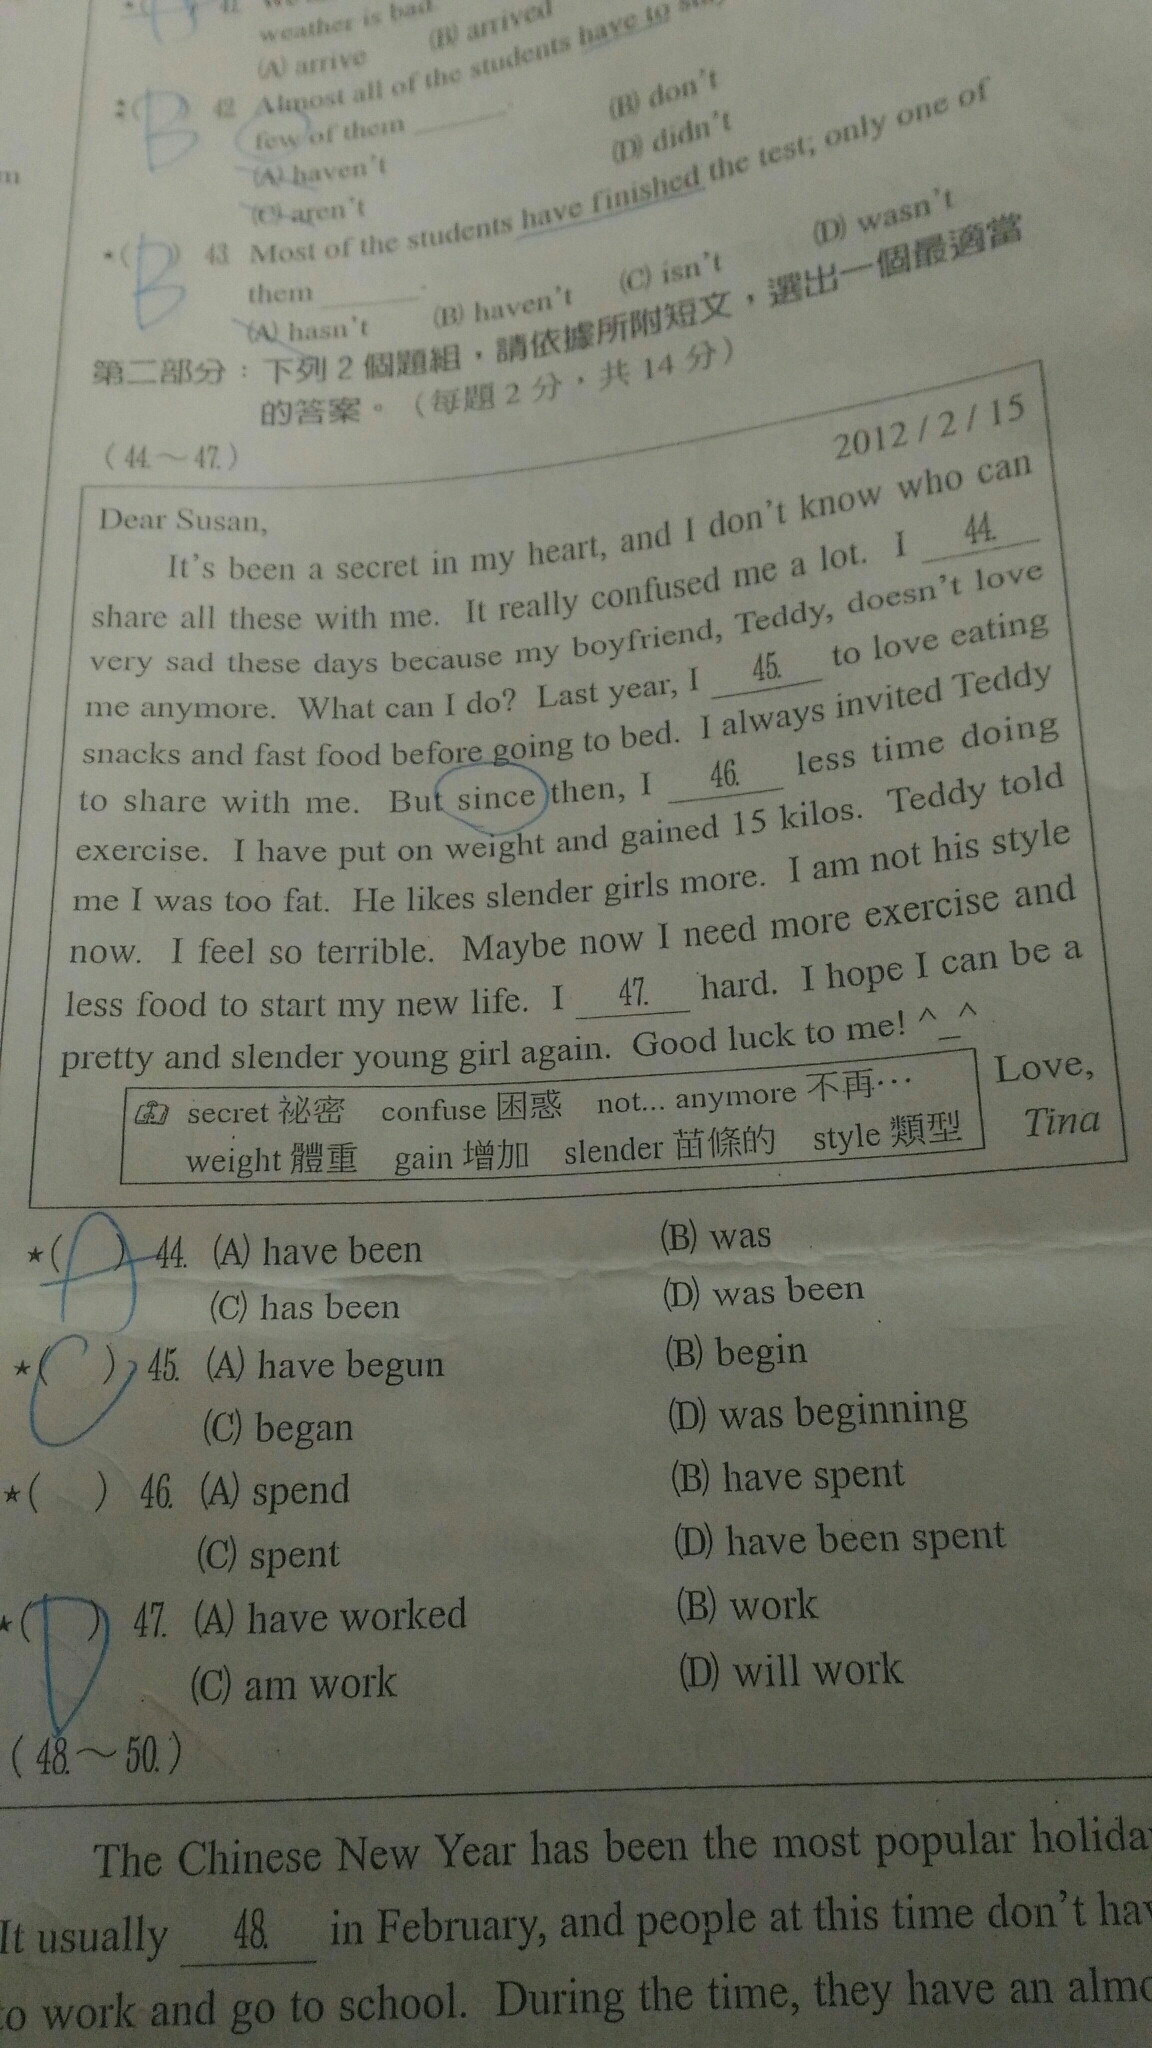 41
weather is bad
(A) arrive (B) arrived
B 42. Almost all of the students have to
few of them ______.
(A) haven't (B) don't
(C) aren't (D) didn't
*( B ) 43. Most of the students have finished the test; only one of
them ______.
(A) hasn't (B) haven't (C) isn't (D) wasn't
第二部分：下列2個題組，請依據所附短文，選出一個最適當
的答案。（每題2分，共14分）
(44.～47.)
2012 / 2 / 15
Dear Susan,
It's been a secret in my heart, and I don't know who can
share all these with me. It really confused me a lot. I 44.
very sad these days because my boyfriend, Teddy, doesn't love
me anymore. What can I do? Last year, I 45. to love eating
snacks and fast food before going to bed. I always invited Teddy
to share with me. But since then, I 46. less time doing
exercise. I have put on weight and gained 15 kilos. Teddy told
me I was too fat. He likes slender girls more. I am not his style
now. I feel so terrible. Maybe now I need more exercise and
less food to start my new life. I 47. hard. I hope I can be a
pretty and slender young girl again. Good luck to me! ^_^
Love,
Tina
secret 祕密 confuse 困惑 not... anymore 不再…
weight 體重 gain 增加 slender 苗條的 style 類型
★( A ) 44. (A) have been (B) was
(C) has been (D) was been
★( C ) 45. (A) have begun (B) begin
(C) began (D) was beginning
★( ) 46. (A) spend (B) have spent
(C) spent (D) have been spent
★( D ) 47. (A) have worked (B) work
(C) am work (D) will work
(48.～50.)
The Chinese New Year has been the most popular
It usually 48. in February, and people at this time don't
to work and go to school. During the time, they have an